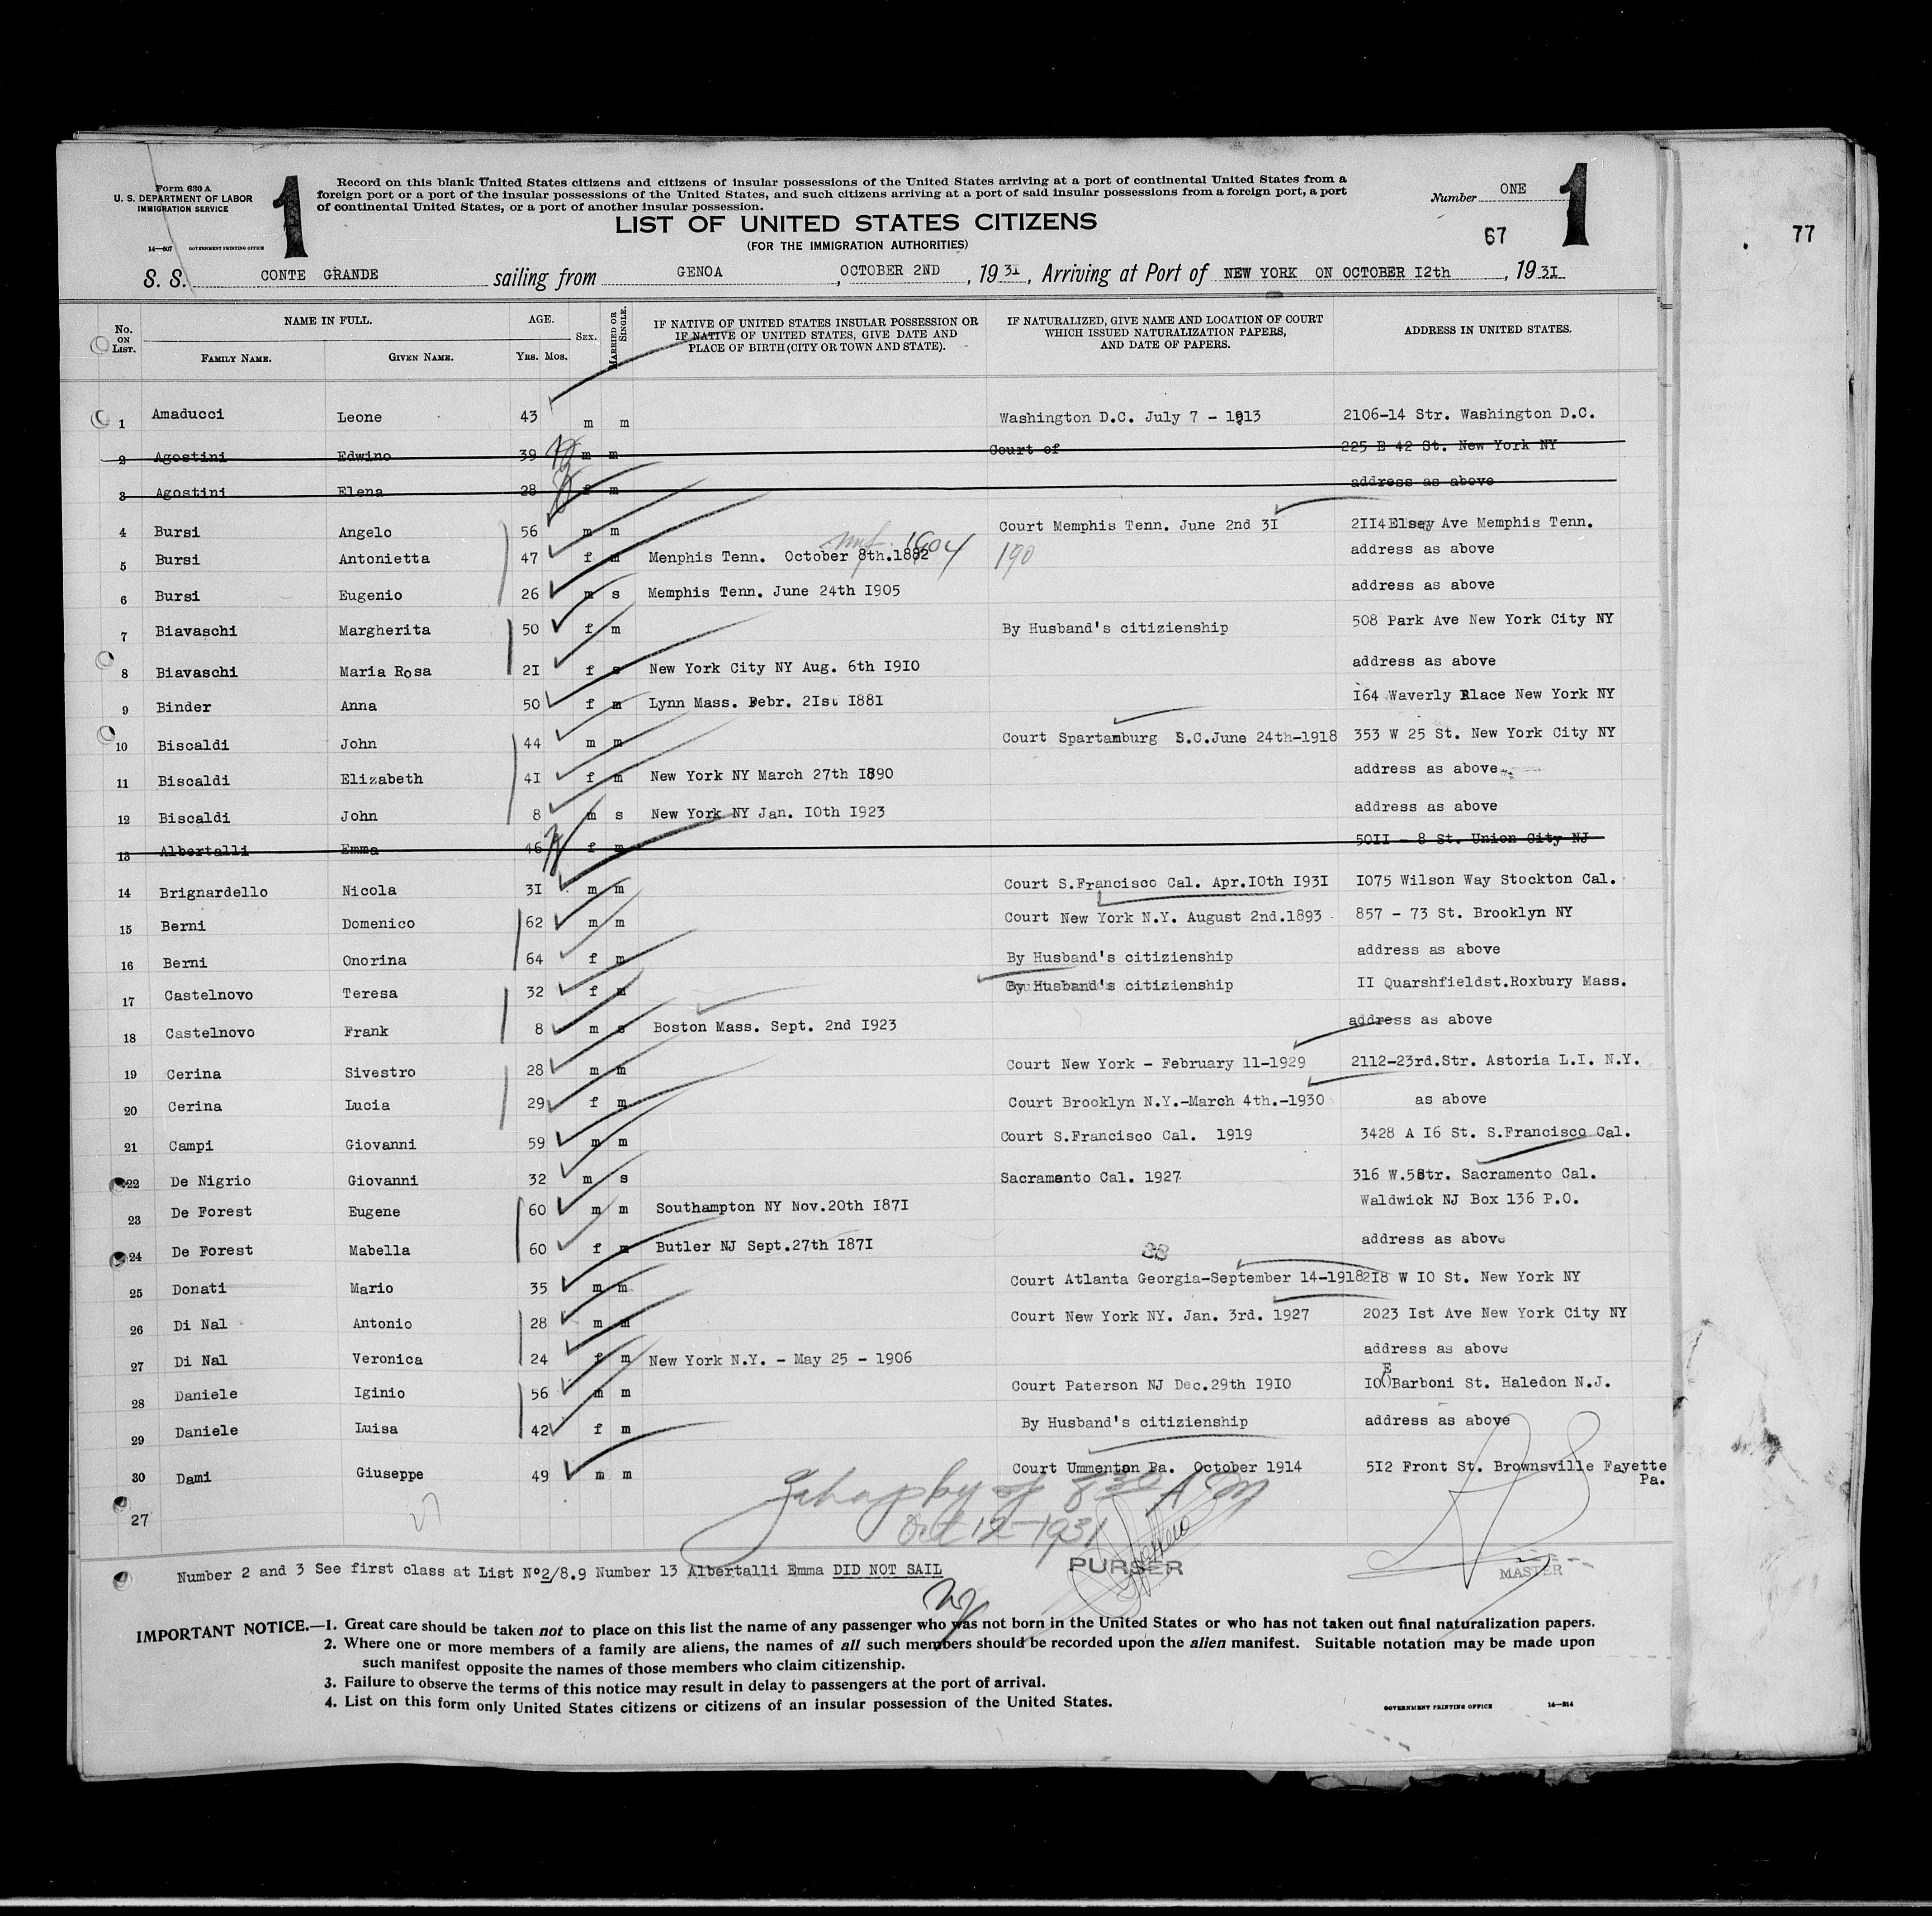 Form 630 A
U. S. DEPARTMENT OF LABOR
IMMIGRATION SERVICE
14—507 GOVERNMENT PRINTING OFFICE
1
Record on this blank United States citizens and citizens of insular possessions of the United States arriving at a port of continental United States from a
foreign port or a port of the insular possessions of the United States, and such citizens arriving at a port of said insular possessions from a foreign port, a port
of continental United States, or a port of another insular possession.
Number ONE
1
LIST OF UNITED STATES CITIZENS
(FOR THE IMMIGRATION AUTHORITIES)
67
77
S. S. CONTE GRANDE sailing from GENOA, OCTOBER 2ND, 1931, Arriving at Port of NEW YORK ON OCTOBER I2th, 1931
No. ON LIST. NAME IN FULL. FAMILY NAME. GIVEN NAME. AGE. YRS. MOS. SEX. MARRIED OR SINGLE. IF NATIVE OF UNITED STATES INSULAR POSSESSION OR IF NATIVE OF UNITED STATES, GIVE DATE AND PLACE OF BIRTH (CITY OR TOWN AND STATE). IF NATURALIZED, GIVE NAME AND LOCATION OF COURT WHICH ISSUED NATURALIZATION PAPERS, AND DATE OF PAPERS. ADDRESS IN UNITED STATES.
1 Amaducci Leone 43 m m Washington D.C. July 7 - 1913 2106-14 Str. Washington D.C.
2 Agostini Edwino 39 m m Court of 225 E 42 St. New York NY
3 Agostini Elena 28 f m address as above
4 Bursi Angelo 56 m m Court Memphis Tenn. June 2nd 3I 2II4 Elsey Ave Memphis Tenn.
5 Bursi Antonietta 47 f m Menphis Tenn. October 8th.1882 1904 190 address as above
6 Bursi Eugenio 26 m s Memphis Tenn. June 24th I905 address as above
7 Biavaschi Margherita 50 f m By Husband's citizienship 508 Park Ave New York City NY
8 Biavaschi Maria Rosa 2I f s New York City NY Aug. 6th I9I0 address as above
9 Binder Anna 50 f m Lynn Mass. Febr. 2Ist I88I I64 Waverly Rlace New York NY
10 Biscaldi John 44 m m Court Spartamburg S.C.June 24th-1918 353 W 25 St. New York City NY
11 Biscaldi Elizabeth 4I f m New York NY March 27th I890 address as above
12 Biscaldi John 8 m s New York NY Jan. I0th I923 address as above
13 Albertalli Emma 46 f m 50II - 8 St. Union City NJ
14 Brignardello Nicola 3I m m Court S.Francisco Cal. Apr.I0th I93I I075 Wilson Way Stockton Cal.
15 Berni Domenico 62 m m Court New York N.Y. August 2nd.1893 857 - 73 St. Brooklyn NY
16 Berni Onorina 64 f m By Husband's citizienship address as above
17 Castelnovo Teresa 32 f m By Husband's citizienship II Quarshfieldst.Roxbury Mass.
18 Castelnovo Frank 8 m s Boston Mass. Sept. 2nd I923 address as above
19 Cerina Sivestro 28 m m Court New York - February 11-1929 2112-23rd.Str. Astoria L.I. N.Y.
20 Cerina Lucia 29 f m Court Brooklyn N.Y.-March 4th.-1930 as above
21 Campi Giovanni 59 m m Court S.Francisco Cal. 1919 3428 A I6 St. S.Francisco Cal.
22 De Nigrio Giovanni 32 m s Sacramento Cal. 1927 316 W.5Str. Sacramento Cal.
23 De Forest Eugene 60 m m Southampton NY Nov.20th I87I Waldwick NJ Box 136 P.O.
24 De Forest Mabella 60 f m Butler NJ Sept.27th I87I address as above
25 Donati Mario 35 m m Court Atlanta Georgia-September 14-1918 218 W I0 St. New York NY
26 Di Nal Antonio 28 m m Court New York NY. Jan. 3rd. 1927 2023 Ist Ave New York City NY
27 Di Nal Veronica 24 f m New York N.Y. - May 25 - 1906 address as above
28 Daniele Iginio 56 m m Court Paterson NJ Dec.29th I9I0 I00 E Barboni St. Haledon N.J.
29 Daniele Luisa 42 f m By Husband's citizienship address as above
30 Dami Giuseppe 49 m m Court Ummenton Pa. October 1914 5I2 Front St. Brownsville Fayette
Pa.
27
Oct 12-1931
PURSER
MASTER
Number 2 and 3 See first class at List N°2/8.9 Number 13 Albertalli Emma DID NOT SAIL
IMPORTANT NOTICE.—1. Great care should be taken not to place on this list the name of any passenger who was not born in the United States or who has not taken out final naturalization papers.
2. Where one or more members of a family are aliens, the names of all such members should be recorded upon the alien manifest. Suitable notation may be made upon
such manifest opposite the names of those members who claim citizenship.
3. Failure to observe the terms of this notice may result in delay to passengers at the port of arrival.
4. List on this form only United States citizens or citizens of an insular possession of the United States.
GOVERNMENT PRINTING OFFICE 14—214